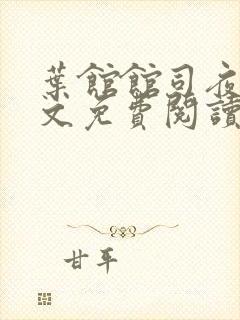 葉館館司夜
文免費閱讀
甘平